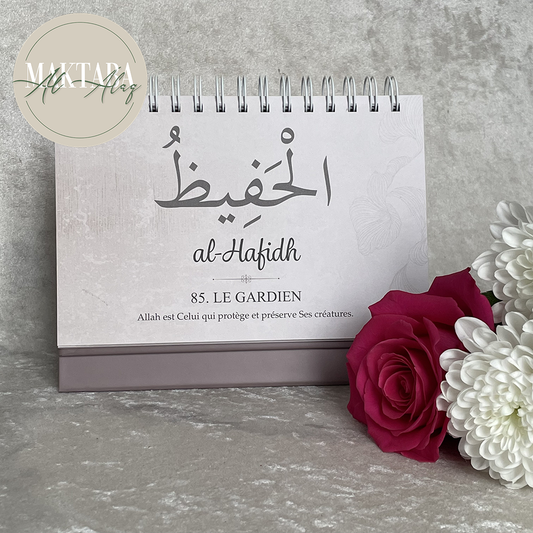 MAKTABA
Al-Alaq
الْحَفِيظُ
al-Hafidh
85. LE GARDIEN
Allah est Celui qui protège et préserve Ses créatures.